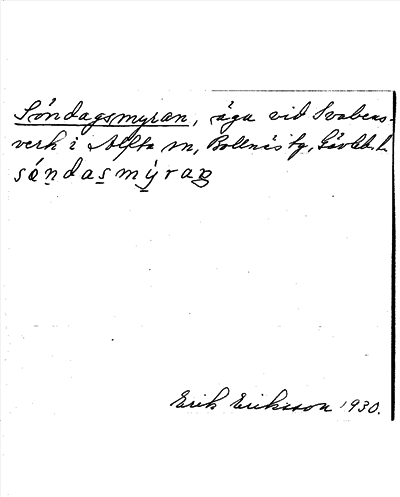 Söndagsmyran, äga vid Svabens-
verk i Alfta sn, Bollnäs tg, Gävleb. l.
söndasmýran
Erik Eriksson 1930.